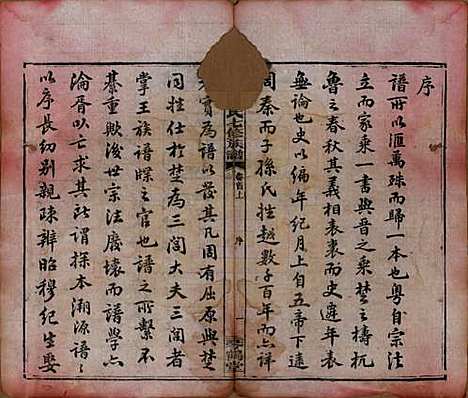 序
譜所以滙萬殊而歸一本也粤自宗法
立而家乘一書與晉之乘楚之檮杌
魯之春秋其義相表裏而史遷年表
無論也史以编年紀月上自五帝下逮
周秦而子孫氏姓越數千百年而亦詳
氏七修族譜 卷首上 序 一
實為譜以發其凡周有屈原與楚
同姓仕於楚為三閭大夫三閭者
掌王族譜牒之官也譜之所繫不
綦重歟後世宗法廢壞而譜學亦
淪胥以亡求其所謂探本溯源譜
以序長幼別親疎辨昭穆紀生娶